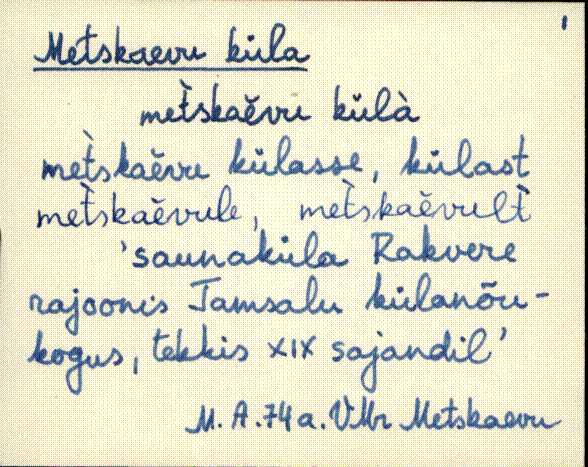 1
Metskaevu küla
me͕t̀skaĕvu külà
met̀skaĕvu külasse, külast
met̀skaĕvule, met̀skaĕvult̀
'saunaküla Rakvere
rajoonis Tamsalu külanõu-
kogus, tekkis XIX sajandil'
M. A. 74 a. VMr Metskaevu